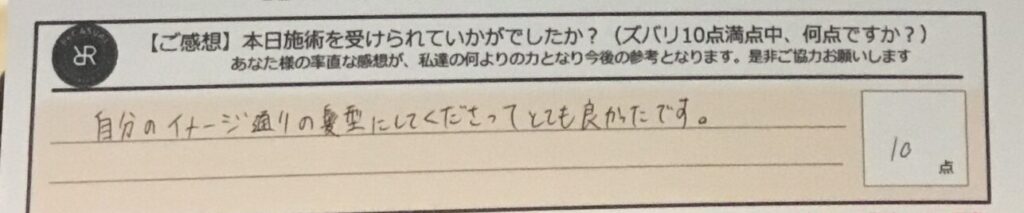 【ご感想】本日施術を受けられていかがでしたか？（ズバリ10点満点中、何点ですか？）
あなた様の率直な感想が、私達の何よりの力となり今後の参考となります。是非ご協力お願いします
自分のイメージ通りの髪型にしてくださってとても良かったです。
10
点